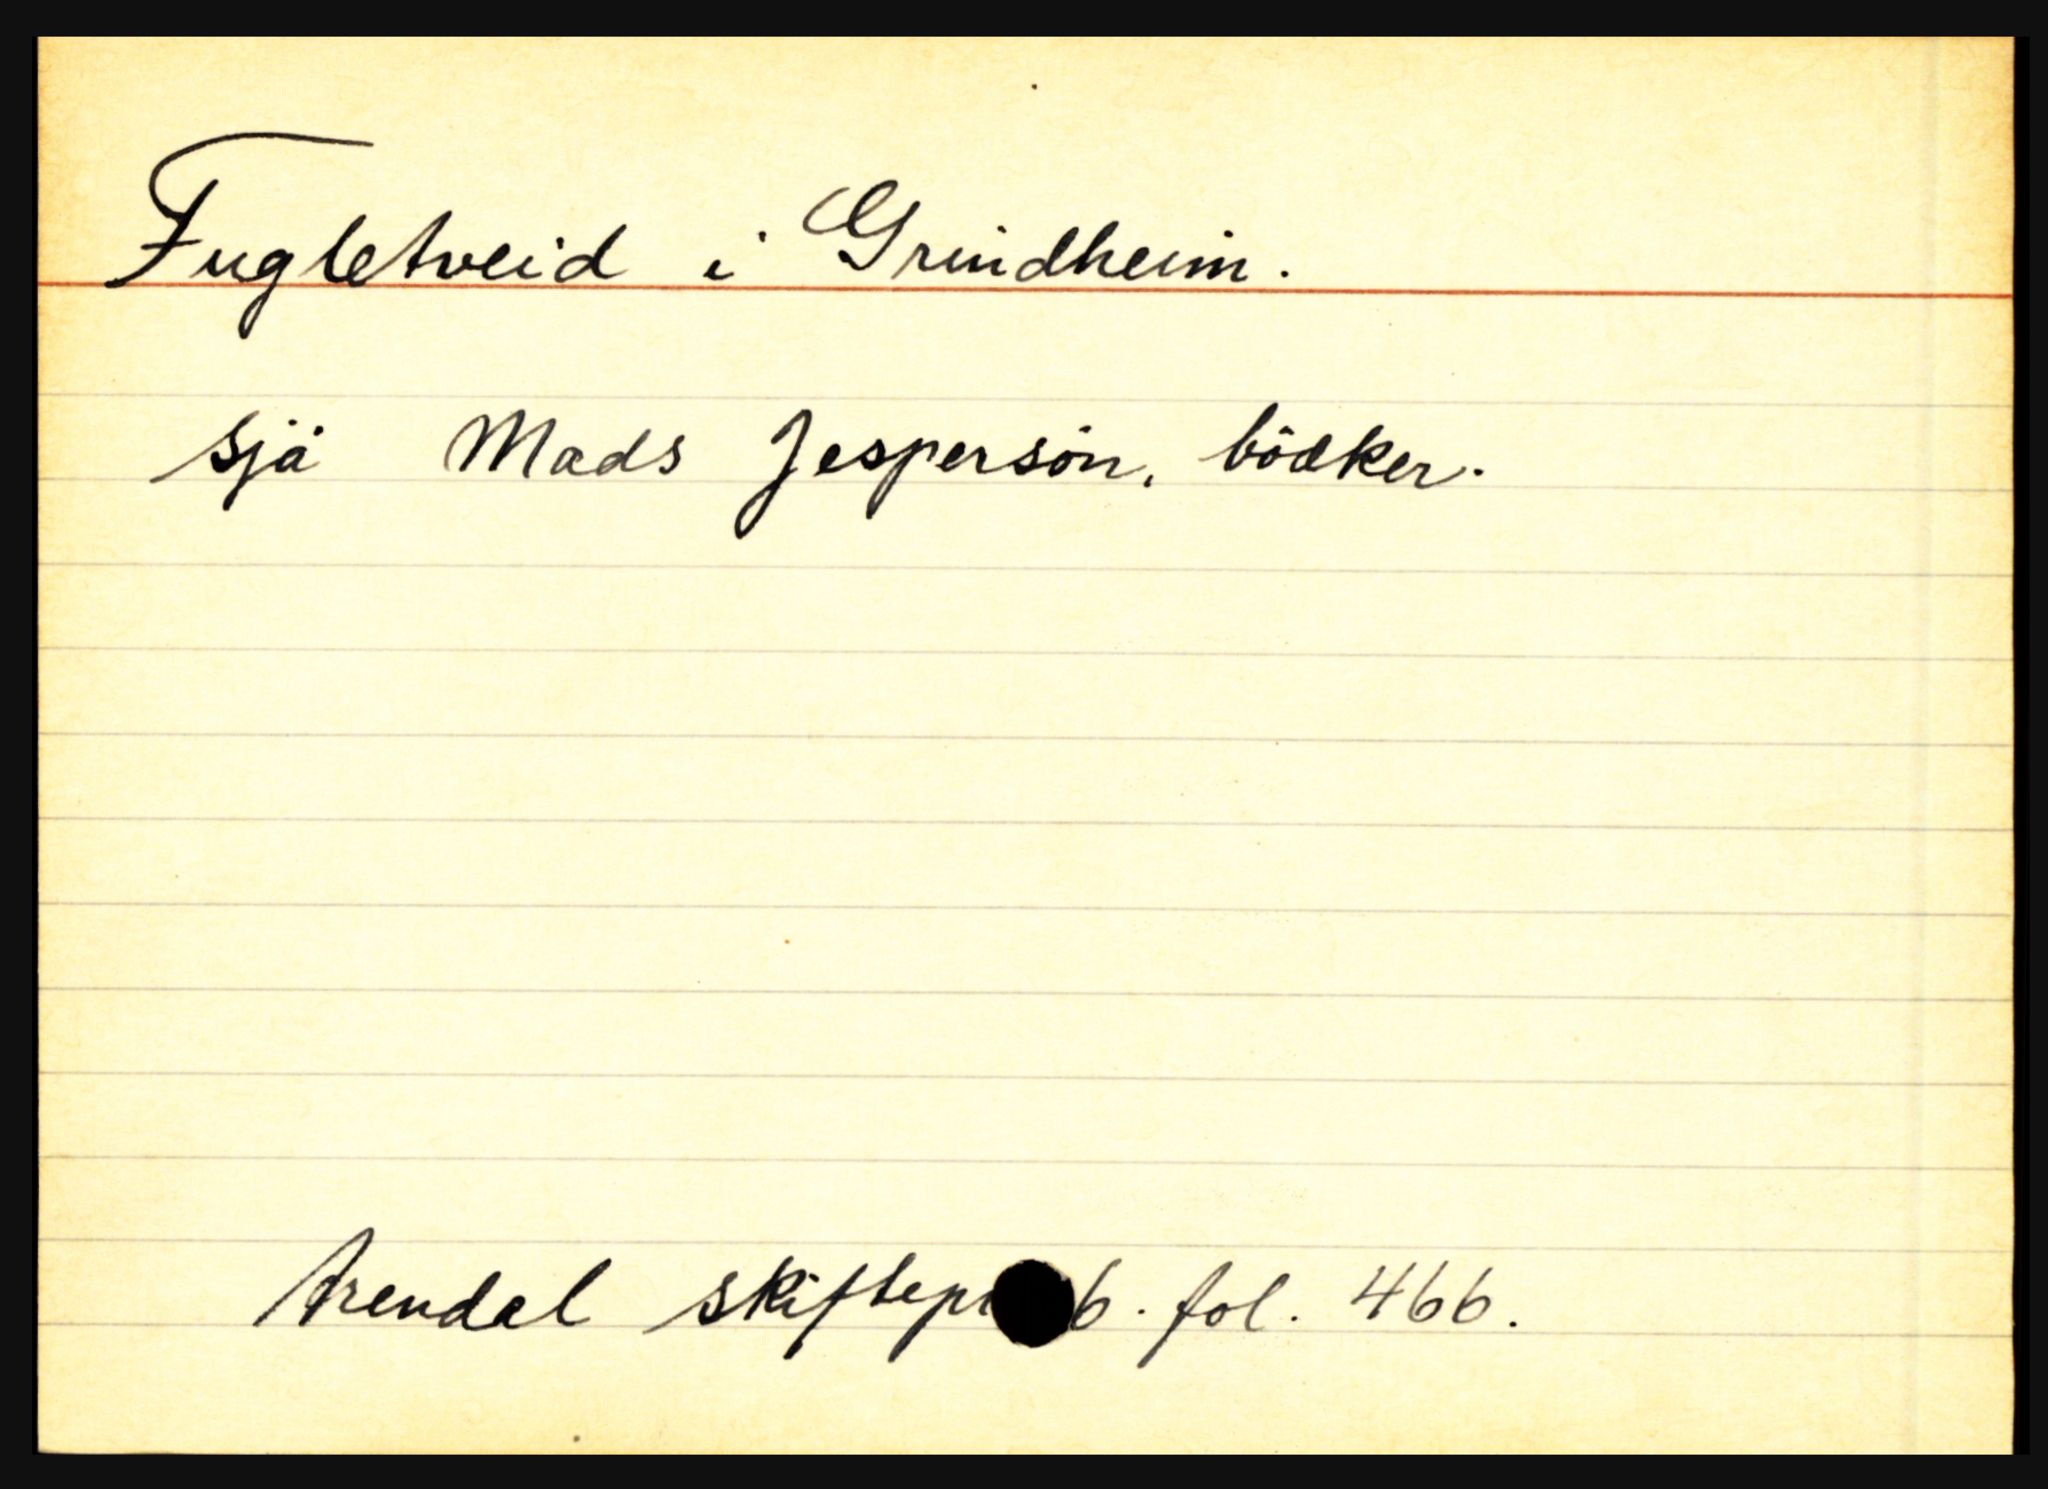 Fugletveid i Grindheim.
sjå Mads Jespersön, bödker.
Arendal 6. fol. 466.